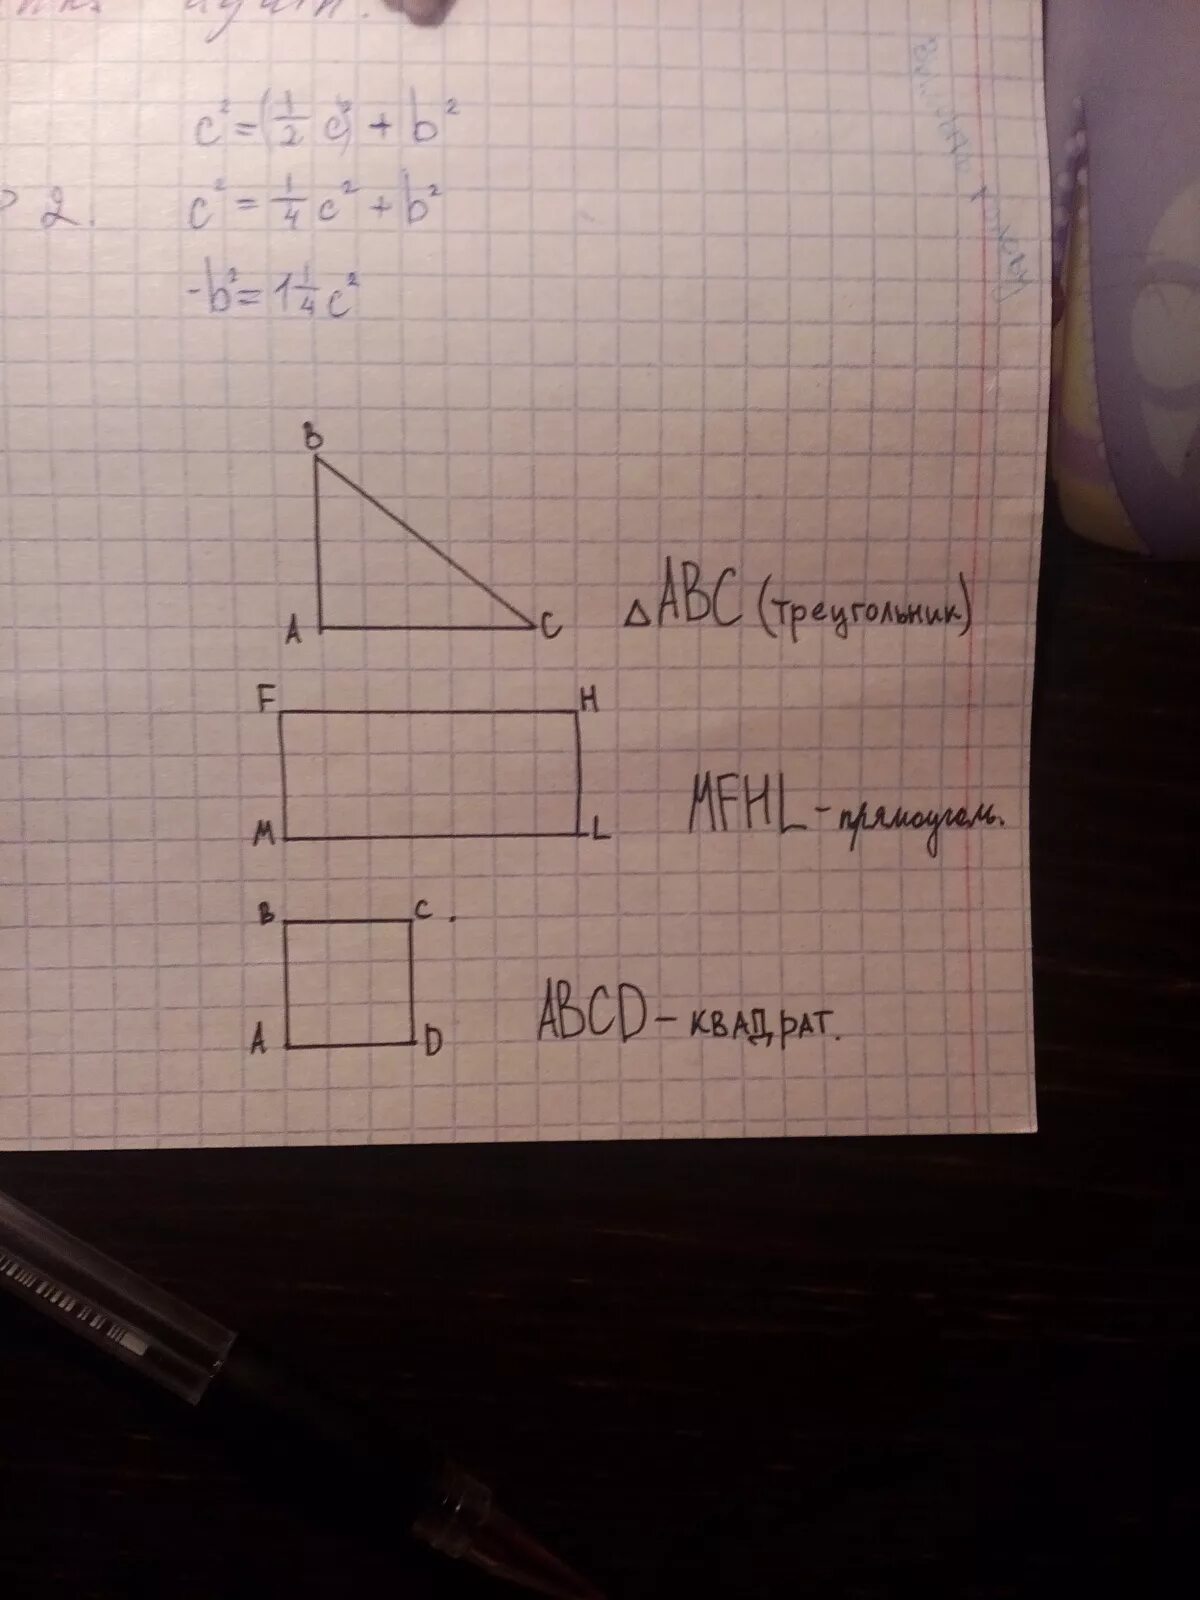 c² = (1/2 c)² + b²
2.
c² = 1/4 c² + b²
-b² = 1 1/4 c²
B
A
C
△ABC (треугольник)
F
H
M
L
MFHL - прямоуголь.
B
C.
A
D
ABCD - квадрат.